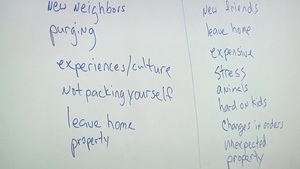 New Neighbors
purging
experiences/culture
Not packing yourself
leave home
property
New friends
leave home
expensive
Stress
animals
hard on kids
Changes in orders
unexpected
property